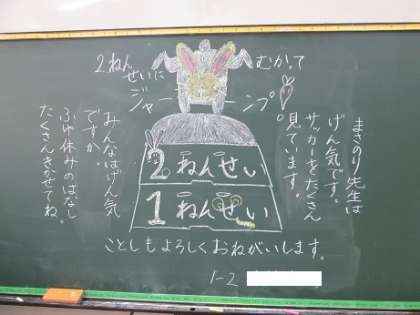 2ねん
せいに
むかって
ジャーーンプ
まさのり先生は
げん気です。
サッカーをたくさん
見ています。
みんなはげん気
ですか。
ふゆ休みのはなし
たくさんきかせてね。
2ねんせい
1ねんせい
ことしもよろしくおねがいします。
1-2